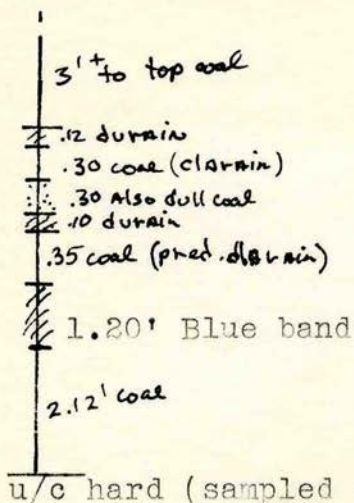 3'+ to top coal
.12 durain
.30 coal (clarain)
.30 Also dull coal
.10 durain
.35 coal (pred. clarain)
1.20' Blue band
2.12' coal
u/c hard (sampled